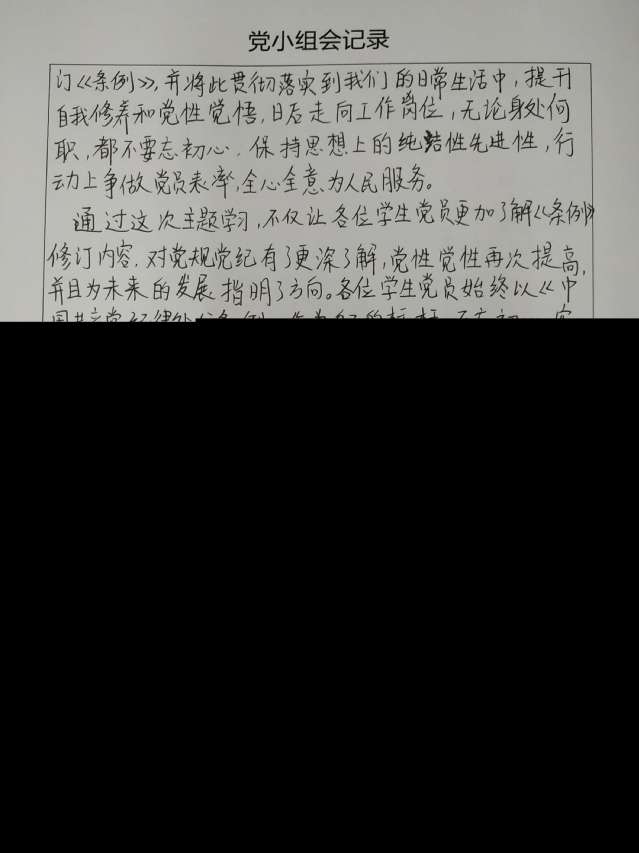 党小组会记录
订《条例》，并将此贯彻落实到我们的日常生活中，提升
自我修养和党性觉悟，日后走向工作岗位，无论身处何
职，都不要忘初心，保持思想上的纯洁性先进性，行
动上争做党员表率，全心全意为人民服务。
通过这次主题学习，不仅让各位学生党员更加了解《条例》
修订内容，对党规党纪有了更深了解，党性觉性再次提高，
并且为未来的发展指明了方向。各位学生党员始终以《中